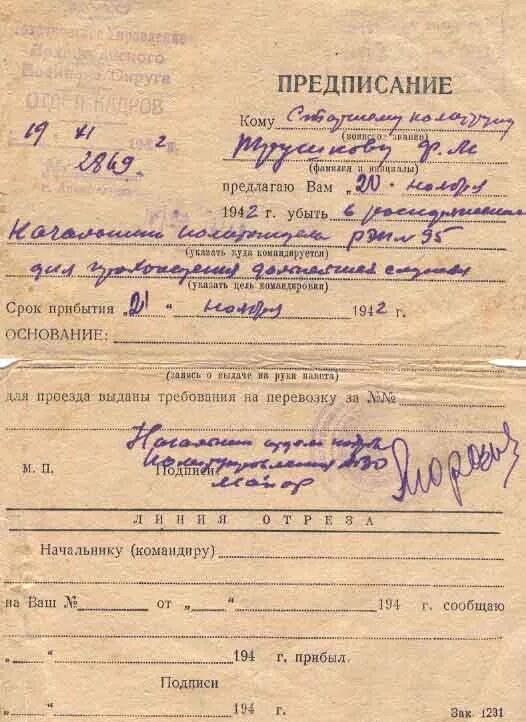 Политического Управления
Архангельского
Военного Округа
ОТДЕЛ КАДРОВ
19 XI 1942 г.
2869.
ПРЕДПИСАНИЕ
Кому Старшему политруку
(воинское звание)
Трушкову Ф. М
(фамилия и инициалы)
предлагаю Вам „20" ноября
1942 г. убыть в распоряжение
Начальника политотдела 95
(указать куда командируется)
для прохождения дальнейшей службы
(указать цель командировки)
Срок прибытия „21" ноября 1942 г.
ОСНОВАНИЕ:
(запись о выдаче на руки пакета)
для проезда выданы требования на перевозку за №№
Начальник отдела кадров
Политуправления АВО
М. П. Подписи Майор
ЛИНИЯ ОТРЕЗА
Начальнику (командиру)
на Ваш № от „ " 194 г. сообщаю
„ " 194 г. прибыл.
Подписи
„ " 194 г.
Зак. 1231